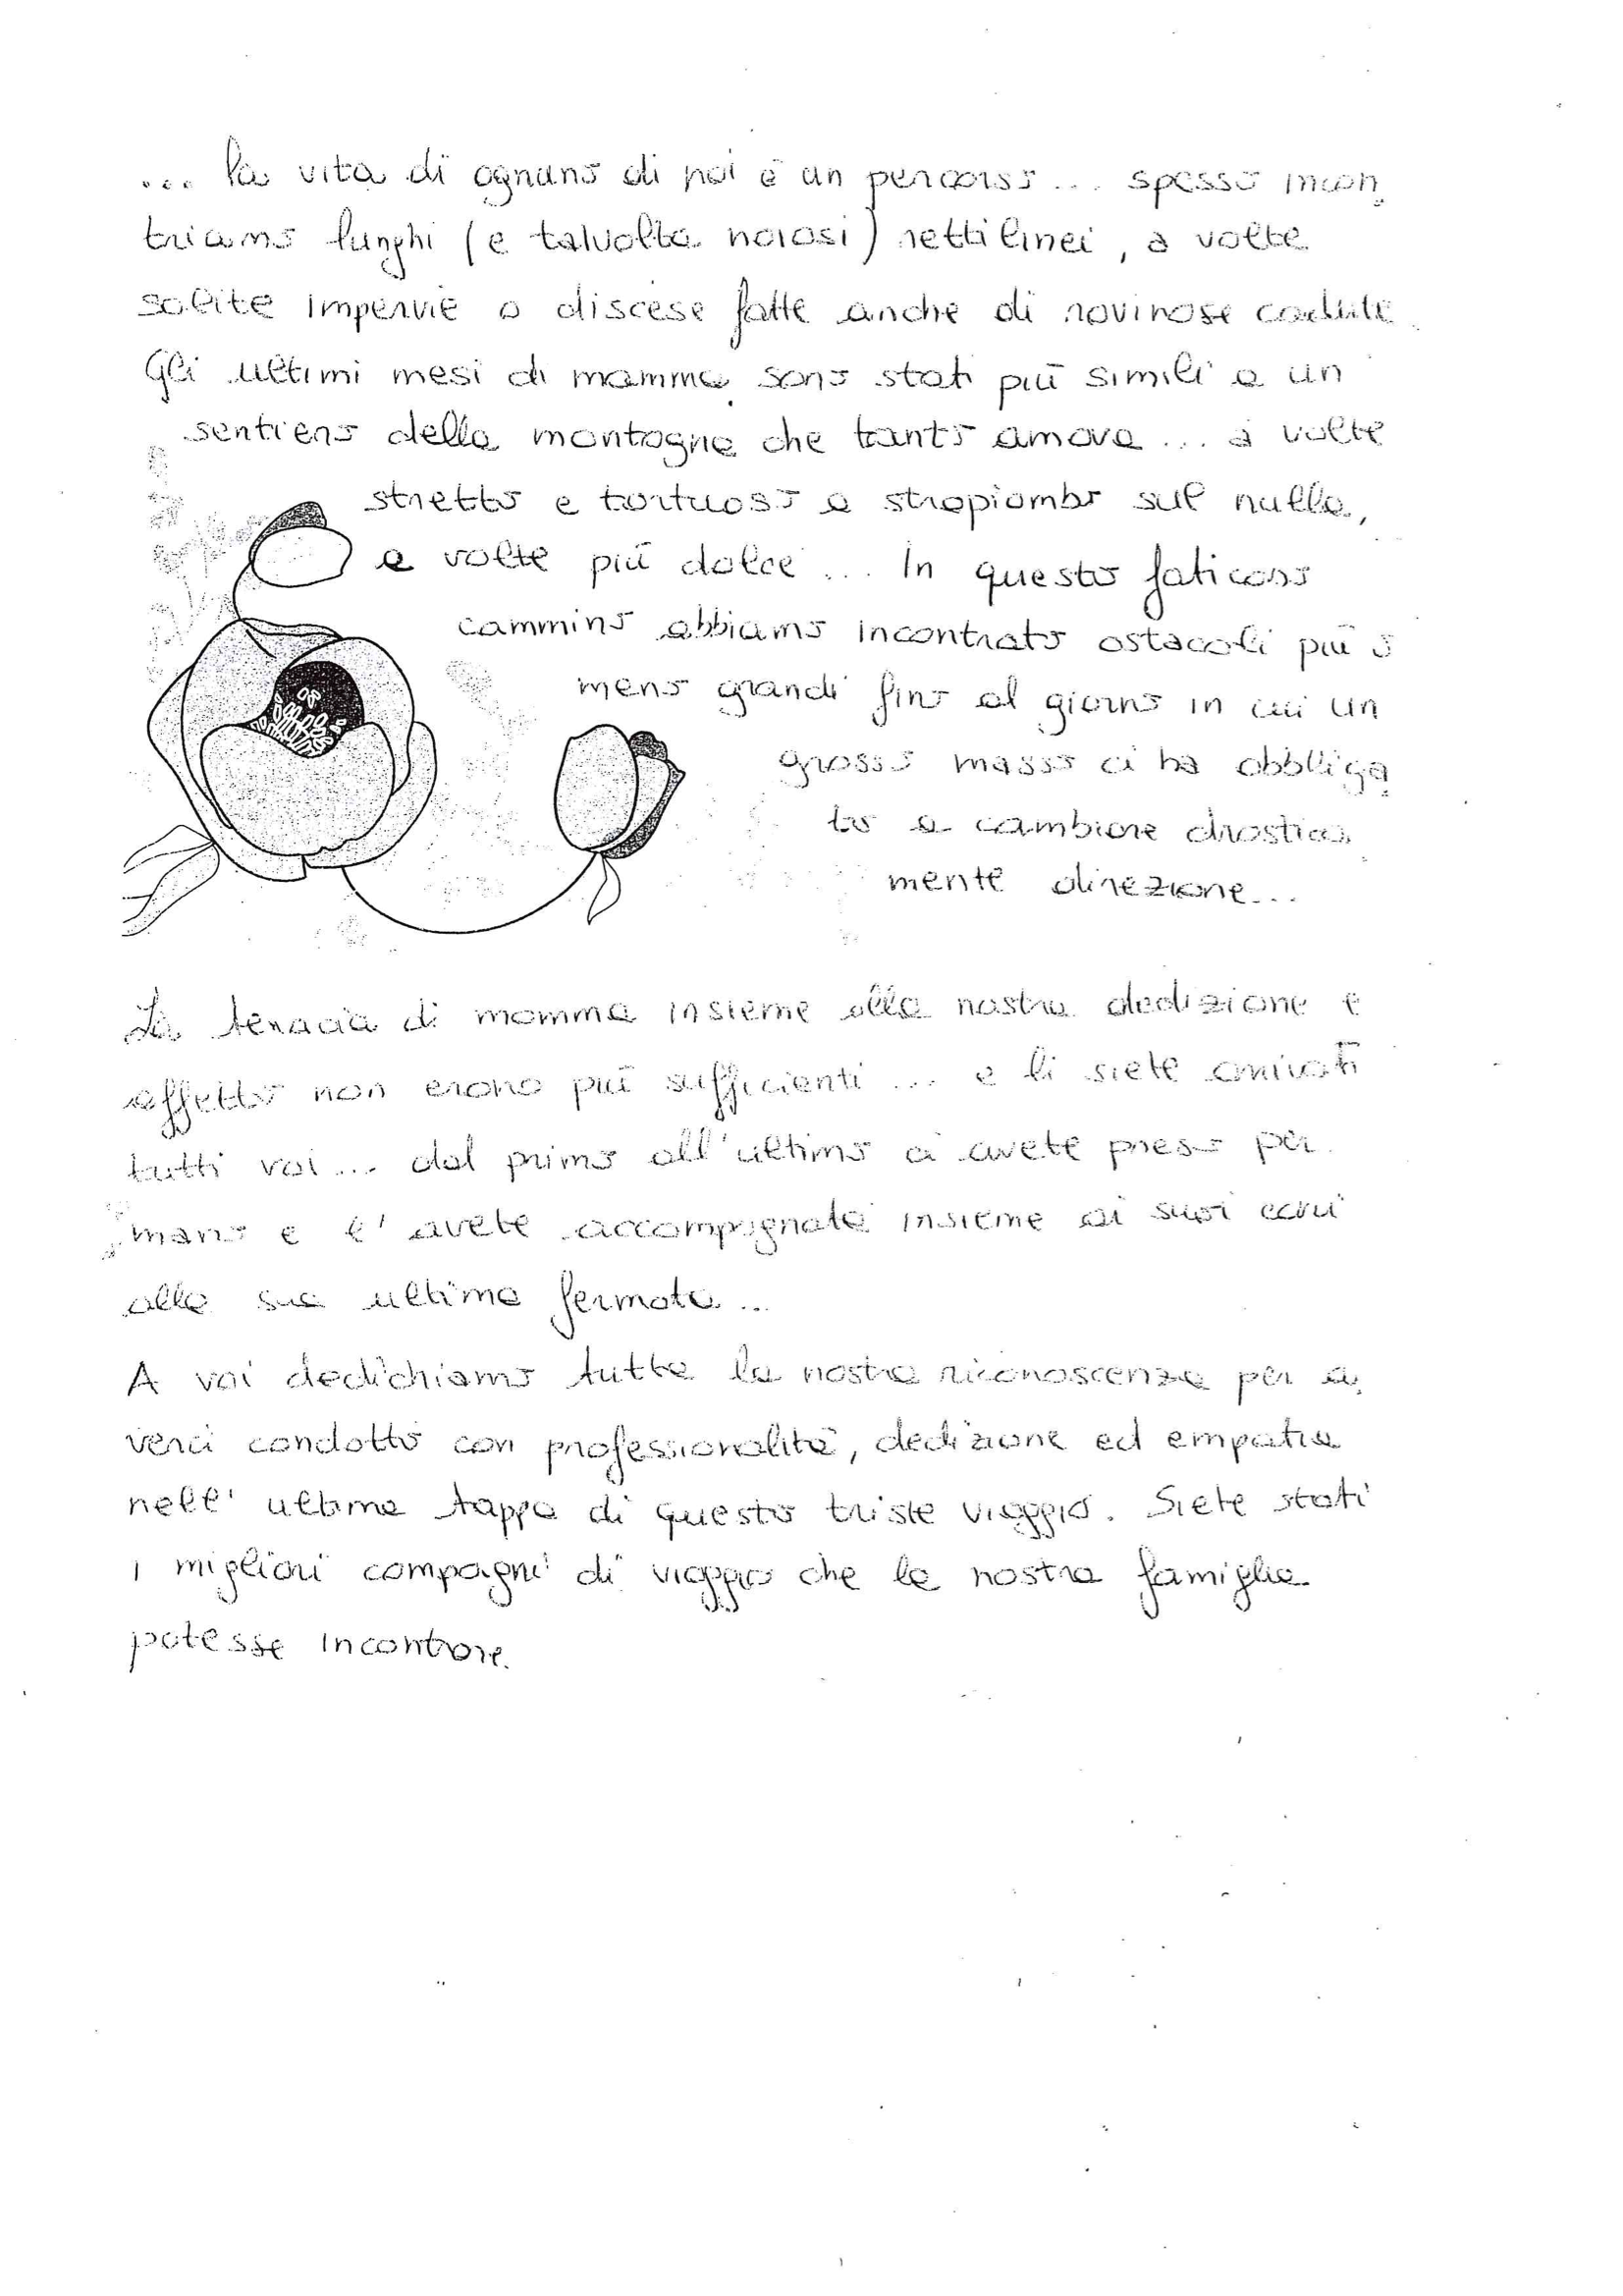 ... la vita di ognuno di noi è un percorso ... spesso incon
triamo lunghi (e talvolta noiosi) rettilinei, a volte
salite impervie o discese fatte anche di rovinose cadute.
Gli ultimi mesi di mamma sono stati più simili a un
sentiero della montagna che tanto amava ... a volte
stretto e tortuoso a strapiombo sul nulla,
a volte più dolce ... In questo faticoso
cammino abbiamo incontrato ostacoli più o
meno grandi fino al giorno in cui un
grosso masso ci ha obbliga
to a cambiare drastica
mente direzione...
La tenacia di mamma insieme alla nostra dedizione e
affetto non erano più sufficienti ... e lì siete arrivati
tutti voi ... dal primo all'ultimo ci avete preso per
mano e l'avete accompagnata insieme ai suoi cari
alla sua ultima fermata ...
A voi dedichiamo tutta la nostra riconoscenza per a
verci condotto con professionalità, dedizione ed empatia
nell'ultima tappa di questo triste viaggio. Siete stati
i migliori compagni di viaggio che la nostra famiglia
potesse incontrare.